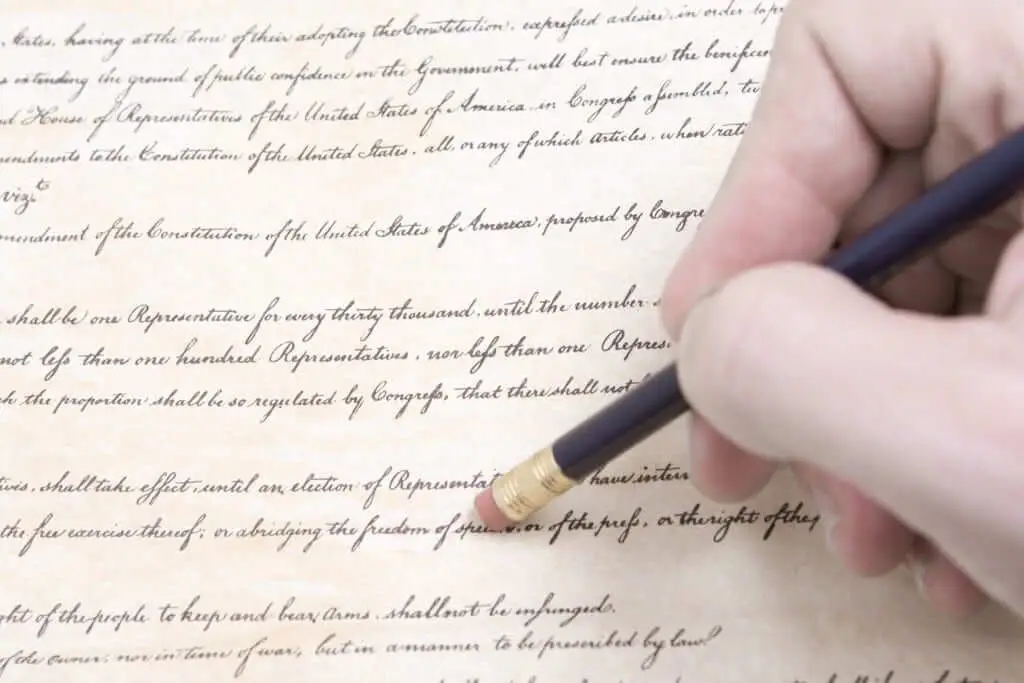 States, having at the time of their adopting the Constitution, expressed a desire, in order to
extending the ground of public confidence in the Government, will best ensure the
House of Representatives of the United States of America, in Congress assembled,
to the Constitution of the United States, all, or any of which Articles, when
vizt
of the Constitution of the United States of America, proposed by
shall be one Representative for every thirty thousand, until the number
not less than one hundred Representatives, nor less than one
the proportion shall be so regulated by Congress, that there shall not
shall take effect, until an election of have
the free exercise thereof; or abridging the freedom of or of the press, or the right of the
of the people to keep and bear Arms, shall not be infringed.
of the owner, nor in time of war, but in a manner to be prescribed by law.